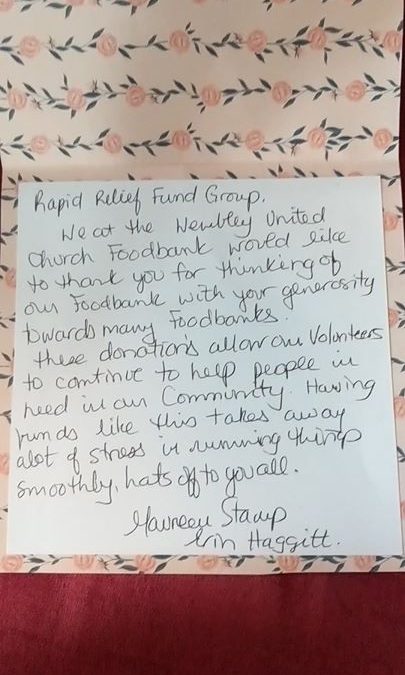 Rapid Relief Fund Group.
We at the Wembley United
Church Foodbank would like
to thank you for thinking of
our Foodbank with your generosity
towards many Foodbanks.
these donations allow our Volunteers
to continue to help people in
need in our Community. Having
funds like this takes away
alot of stress in running things
smoothly, hats off to you all.
Maureen Stamp
Erin Haggitt.